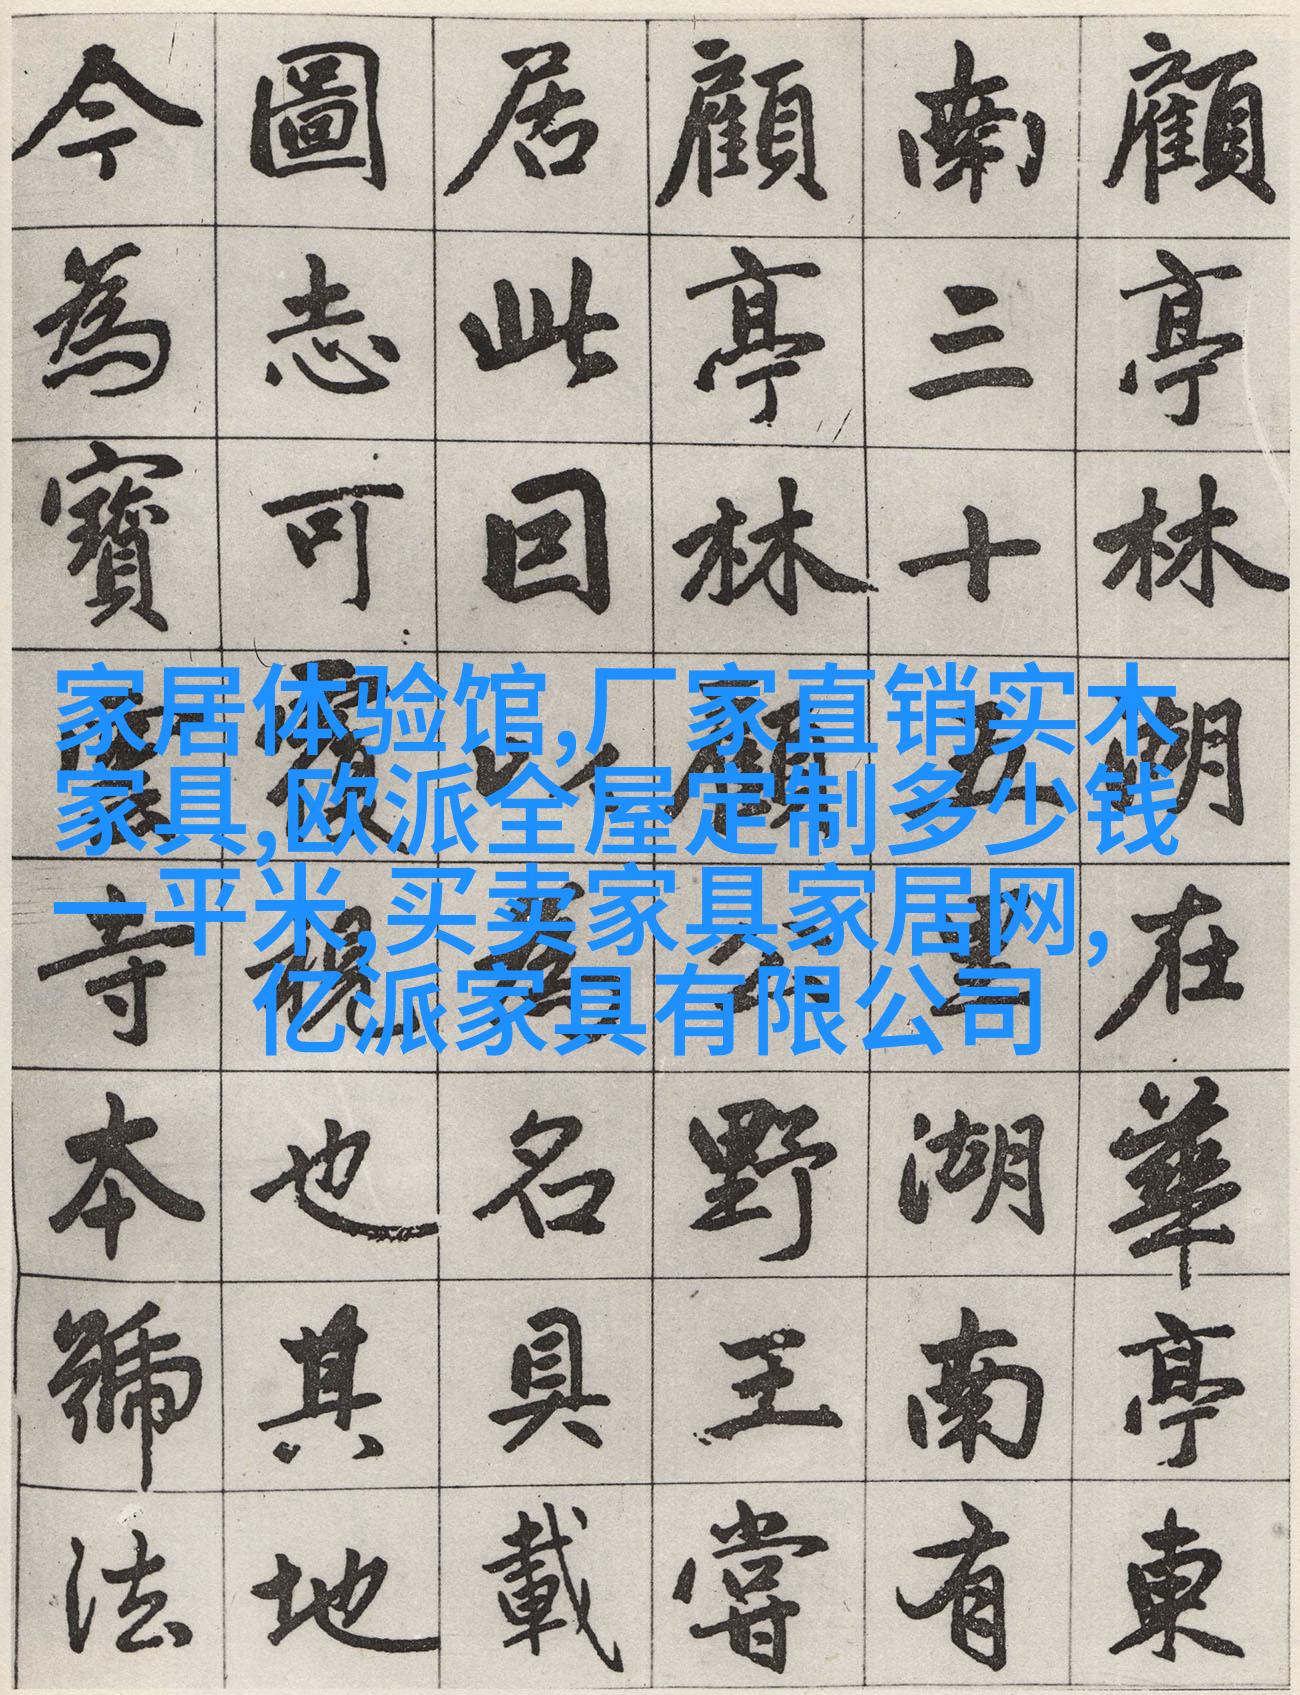 顧亭林湖在華亭東
南三十五里湖南有
顧亭林顧公野王嘗
居此囙以為名具載
圖志可覆視也其地
今為寶雲寺本號法
家居体验馆,厂家直销实木
家具,欧派全屋定制多少钱
一平米,买卖家具家居网,
亿派家具有限公司